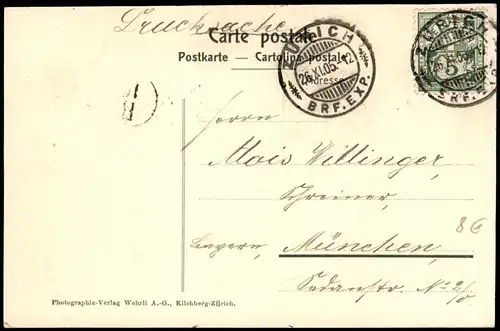 Drucksache
Carte postale
Postkarte — Cartolina postale
Adresse
ZÜRICH
26.XI.05.-12
BRF. EXP.
ZÜRICH
26.XI.05.
BRF. EXP.
5
Herrn
Alois Willinger,
Schreiner,
Bayern, München,
Sedanstr. No 2/0
8€
Photographie-Verlag Wehrli A.-G., Kilchberg-Zürich.